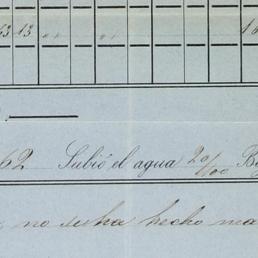 63 13 " " " 16
62 Subió el agua 20/100 B
no se ha hecho